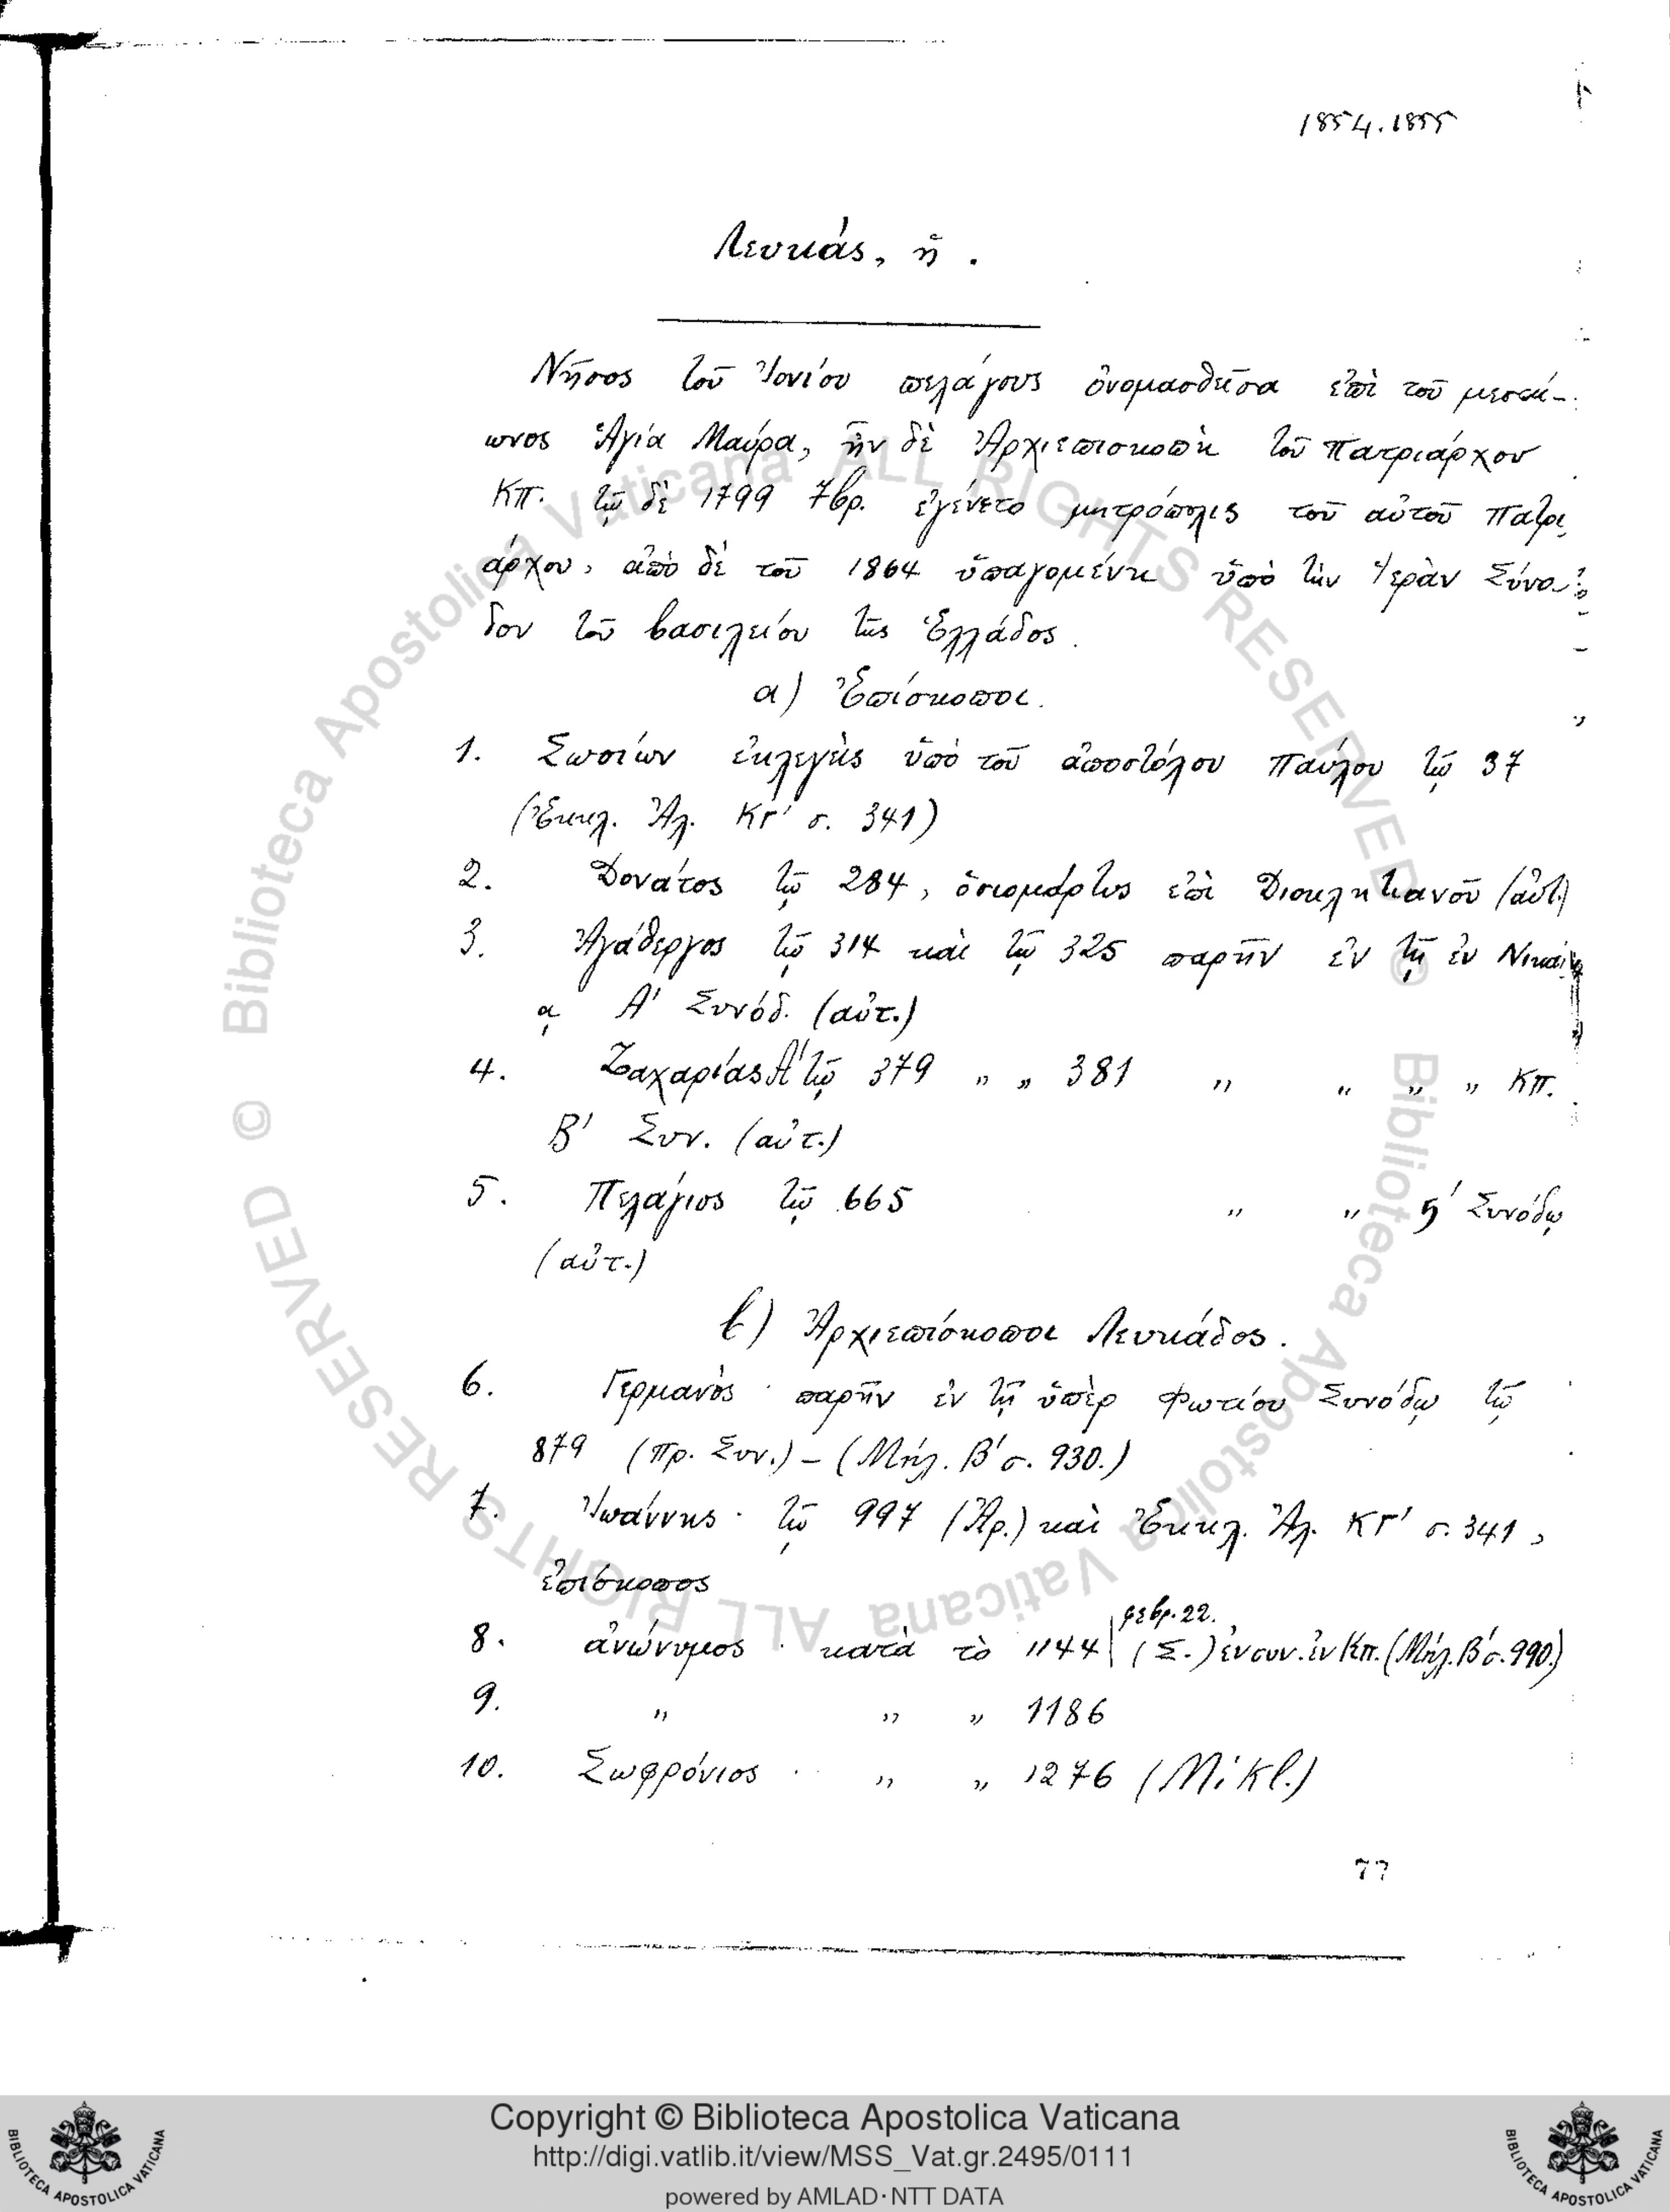 1854.1855
Λευκάς, ἡ.
Νῆσος τοῦ Ἰονίου πελάγους ὀνομασθεῖσα ἐπὶ τοῦ μεσαί-
ωνος Ἁγία Μαύρα, ἦν δὲ Ἀρχιεπισκοπὴ τοῦ Πατριάρχου
ΚΠ. τῷ δὲ 1799 7βρ. ἐγένετο μητρόπολις τοῦ αὐτοῦ Πατρι
άρχου, ἀπὸ δὲ τοῦ 1864 ὑπαγομένη ὑπὸ τὴν Ἱερὰν Σύνο
δον τοῦ βασιλείου τῆς Ἑλλάδος.
α) Ἐπίσκοποι.
1. Σωσίων ἐκλεγεὶς ὑπὸ τοῦ ἀποστόλου Παύλου τῷ 37
(Ἐκκλ. Ἀλ. ΚΓ' σ. 341)
2. Δονάτος τῷ 284, ὁσιομάρτυς ἐπὶ Διοκλητιανοῦ (αὐτ.)
3. Ἀγάθεργος τῷ 314 καὶ τῷ 325 παρῆν ἐν τῇ ἐν Νικαί
ᾳ Α' Συνόδ. (αὐτ.)
4. Ζαχαρίας Α' τῷ 379 „ „ 381 „ „ „ „ ΚΠ.
Β' Συν. (αὐτ.)
5. Πελάγιος τῷ 665 „ „ ϛ' Συνόδῳ
(αὐτ.)
β) Ἀρχιεπίσκοποι Λευκάδος.
6. Γερμανὸς · παρῆν ἐν τῇ ὑπὲρ Φωτίου Συνόδῳ τῷ
879 (Πρ. Συν.) – (Μήλ. Β' σ. 930.)
7. Ἰωάννης · τῷ 997 (Ἀρ.) καὶ Ἐκκλ. Ἀλ. ΚΓ' σ. 341,
ἐπίσκοπος
φεβρ. 22.
8. ἀνώνυμος · κατὰ τὸ 1144 (Σ.) ἐν συν. ἐν Κπ. (Μήλ. Β' σ. 990.)
9. „ „ „ 1186
10. Σωφρόνιος · „ „ 1276 (Mikl.)
77
© Biblioteca Apostolica Vaticana ALL RIGHTS RESERVED © Biblioteca Apostolica Vaticana ALL RIGHTS RESERVED
Copyright © Biblioteca Apostolica Vaticana
http://digi.vatlib.it/view/MSS_Vat.gr.2495/0111
powered by AMLAD·NTT DATA
BIBLIOTECA APOSTOLICA VATICANA
BIBLIOTECA APOSTOLICA VATICANA